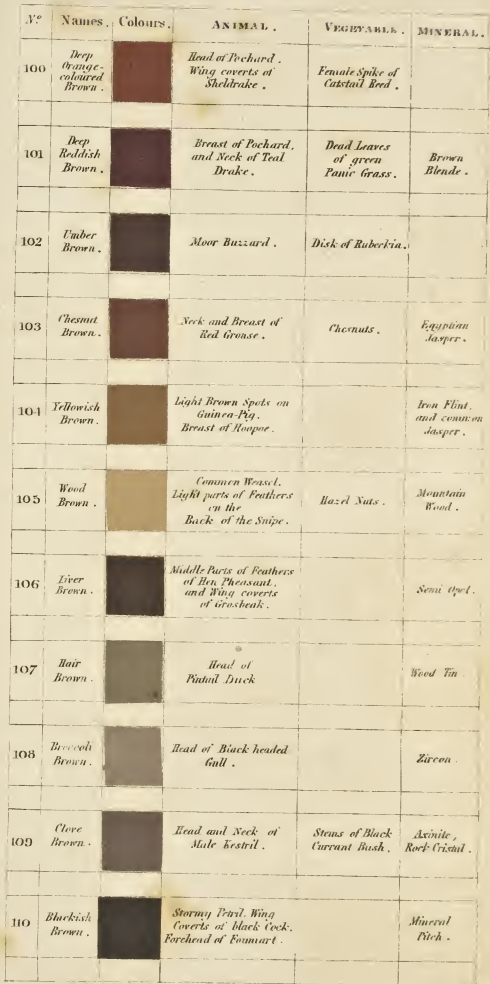 No. Names. Colours. ANIMAL. VEGETABLE. MINERAL.
100
Deep
Orange-
coloured
Brown.
Head of Pochard.
Wing coverts of
Sheldrake.
Female Spike of
Catstail Reed.
101
Deep
Reddish
Brown.
Breast of Pochard,
and Neck of Teal
Drake.
Dead Leaves
of green
Panic Grass.
Brown
Blende.
102
Umber
Brown.
Moor Buzzard.
Disk of Rubeckia.
103
Chesnut
Brown.
Neck and Breast of
Red Grouse.
Chesnuts.
Egyptian
Jasper.
104
Yellowish
Brown.
Light Brown Spots on
Guinea-Pig.
Breast of Hoopoe.
Iron Flint.
and common
Jasper.
105
Wood
Brown.
Common Weasel.
Light parts of Feathers
on the
Back of the Snipe.
Hazel Nuts.
Mountain
Wood.
106
Liver
Brown.
Middle Parts of Feathers
of Hen Pheasant.
and Wing coverts
of Grosbeak.
Semi Opel.
107
Hair
Brown.
Head of
Pintail Duck
Wood Tin.
108
Broccoli
Brown.
Head of Black headed
Gull.
Zircon.
109
Clove
Brown.
Head and Neck of
Male Kestril.
Stems of Black
Currant Bush.
Axinite,
Rock Cristal.
110
Blackish
Brown.
Stormy Petril. Wing
Coverts of black Cock.
Forehead of Foumart.
Mineral
Pitch.